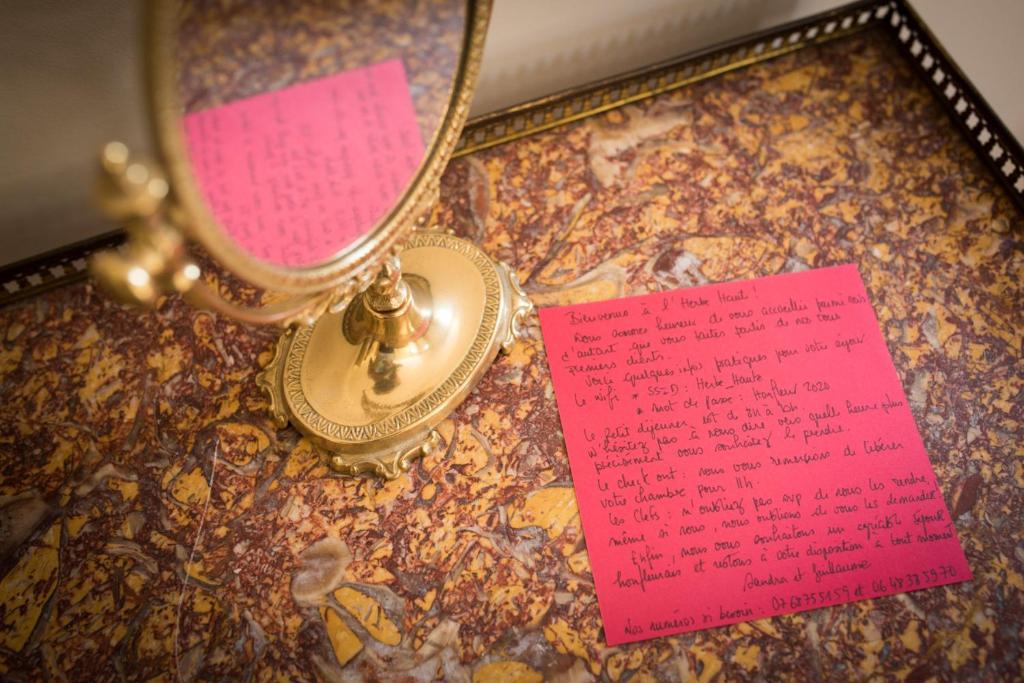 Bienvenue à l'Herbe Haute!
Nous sommes heureux de vous accueillir parmi nous
d'autant que vous faites partis de nos tous
premiers clients.
Voici quelques infos pratiques pour votre séjour
Le wifi * SSID : Herbe_Haute
* Mot de passe : Honfleur 2020
Le petit déjeuner est de 8H à 10h.
N'hésitez pas à nous dire vers quelle heure plus
précisément vous souhaitez le prendre.
Le check out : nous vous remercions de libérer
votre chambre pour 11h.
Les clefs : n'oubliez pas svp de nous les rendre,
même si nous, nous oublions de vous les demander
Enfin, nous vous souhaitons un agréable séjour
honfleurais et restons à votre disposition à tout moment
Sandra et Guillaume
Nos numéros si besoin : 0768755159 et 0648383970